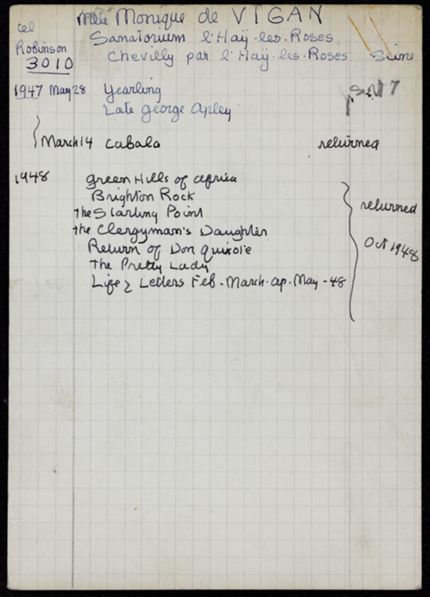 Mlle Monique de VIGAN
tel
Sanatorium l'Haÿ-les-Roses
Robinson
Chevilly par l'Haÿ-les-Roses Seine
3010
1947 May 28 Yearling
Late George Apley
March 14 Cabala returned
1948 Green Hills of Africa
Brighton Rock
the Starting Point
the Clergyman's Daughter
Return of Don Quixote
The Pretty Lady
Life & Letters Feb. March. ap. May - 48
returned
Oct 1948